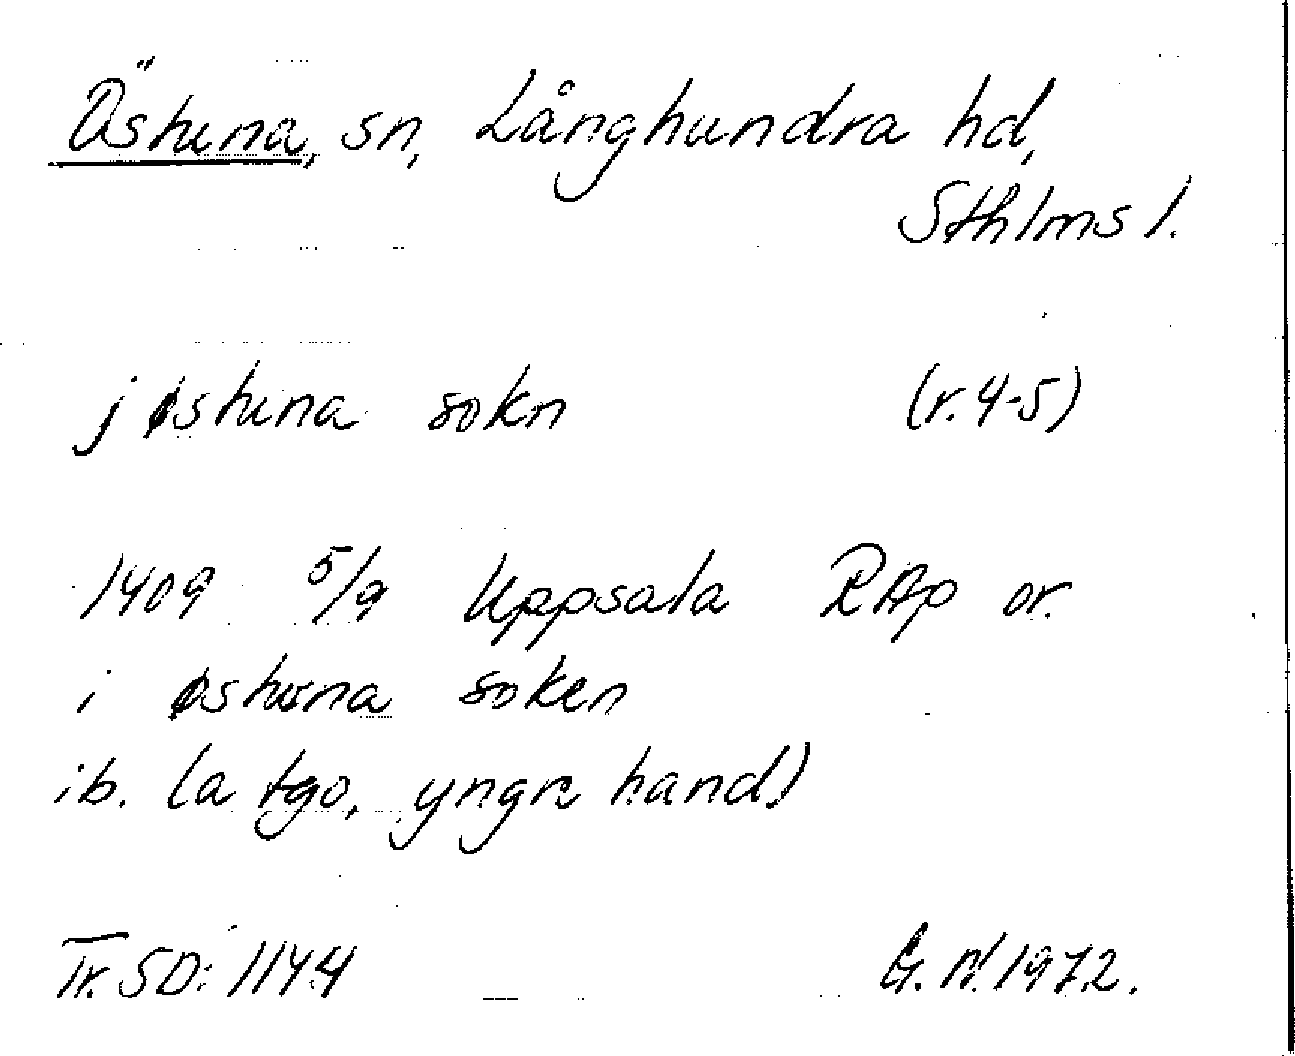 Östuna, sn, Långhundra hd,
Sthlms l.
j østuna sokn (r. 4-5)
1409 5/9 Uppsala RAp or.
i østuna soken
ib. (a tgo, yngre hand)
Tr. SD: 1144 G. N. 1972.